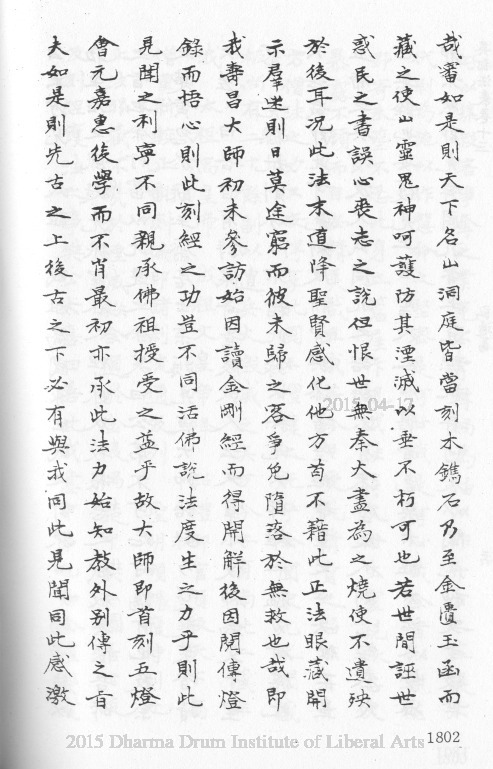 哉審如是則天下名山洞庭皆當刻木鐫石乃至金匱玉函而
藏之使山靈鬼神呵護防其湮滅以垂不朽可也若世間誣世
惑民之書誤心喪志之說但恨世無秦火盡為之燒使不遺殃
於後耳況此法末道降聖賢感化他方苟不藉此正法眼藏開
示羣迷則日莫途窮而彼未歸之客爭免墮落於無救也哉即
我壽昌大師初未參訪始因讀金剛經而得開解後因閱傳燈
錄而悟心則此刻經之功豈不同活佛說法度生之力乎則此
見聞之利寧不同親承佛祖授受之益乎故大師即首刻五燈
會元嘉惠後學而不肖最初亦承此法力始知教外別傳之旨
夫如是則先古之上後古之下必有與我同此見聞同此感激
2015-04-17
1802
2015 Dharma Drum Institute of Liberal Arts